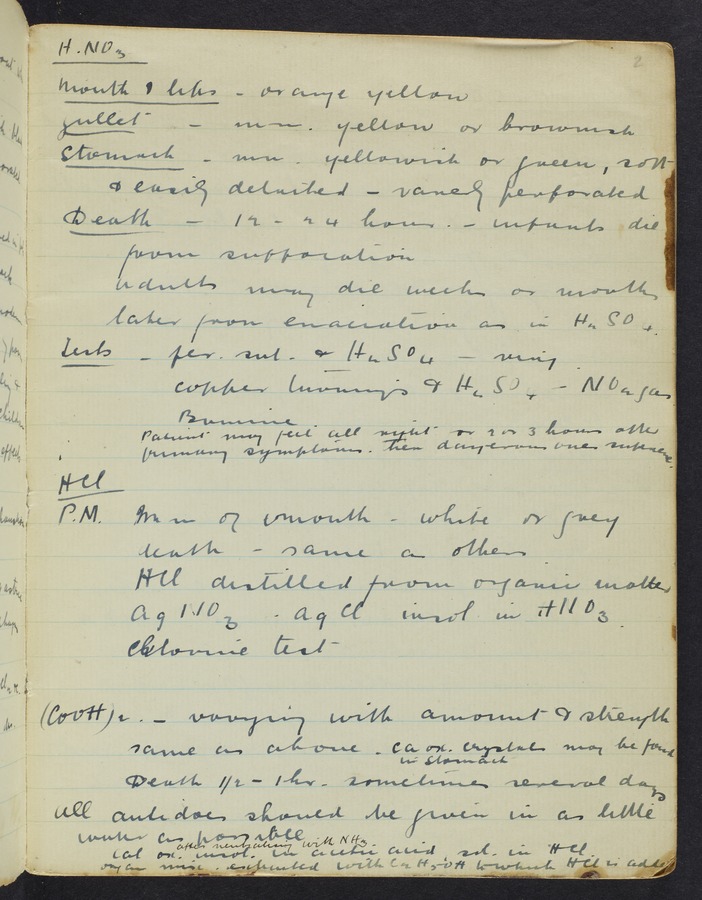 2
H.NO3
Mouth & lips - orange yellow
gullet - m.m. yellow or brownish
Stomach - m.m. yellowish or green, soft
& easily detached - rarely perforated
Death - 12 - 24 hours. - infants die
from suffocation
adults may die weeks or months
later from emaciation as in H2SO4.
Tests - fer. sul. & H2SO4 - ring
copper turnings & H2SO4 - NO2 gas
Brucine
Patient may feel all right for 2 or 3 hours after
primary symptoms. then dangerous ones supervene.
HCl
P.M. m.m of mouth - white or grey
death - same as others
HCl distilled from organic matter
AgNO3 . AgCl insol. in HNO3.
Chlorine test
(COOH)2. - varying with amount & strength
same as above. Ca ox. crystals may be found
in stomach
Death 1/2 - 1 hr. sometimes several days
All antidotes should be given in as little
water as possible
after neutralising with NH3
cal ox. insol. in acetic acid, sol. in HCl.
organ mixt. extracted with C2H5OH to which HCl is added